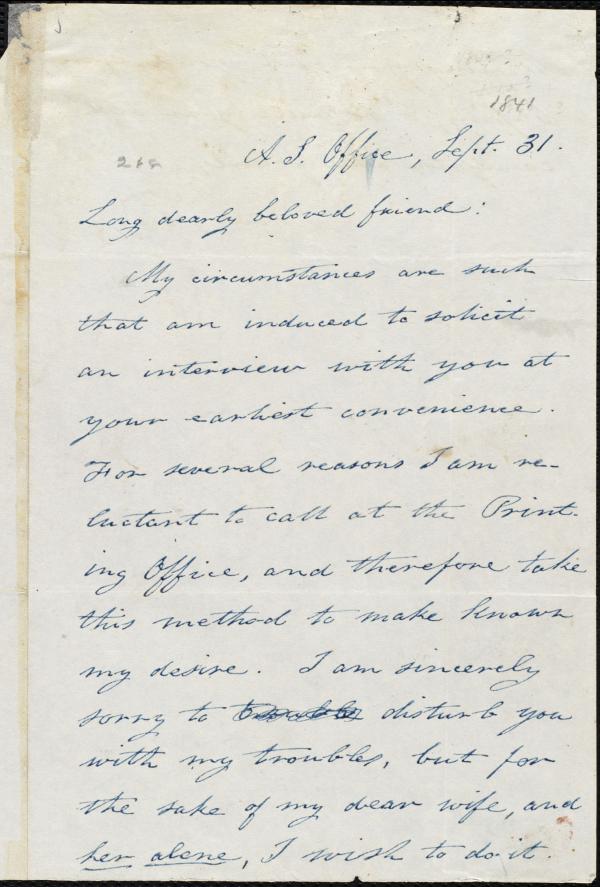 1841
A. S. Office, Sept. 31.
Long dearly beloved friend:
My circumstances are such
that am induced to solicit
an interview with you at
your earliest convenience.
For several reasons I am re-
luctant to call at the Print-
ing Office, and therefore take
this method to make known
my desire. I am sincerely
sorry to disturb you
with my troubles, but for
the sake of my dear wife, and
her alone, I wish to do it.